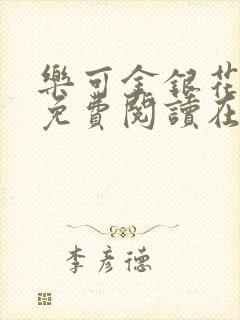 樂可金銀花
免費閱讀在
李彥德